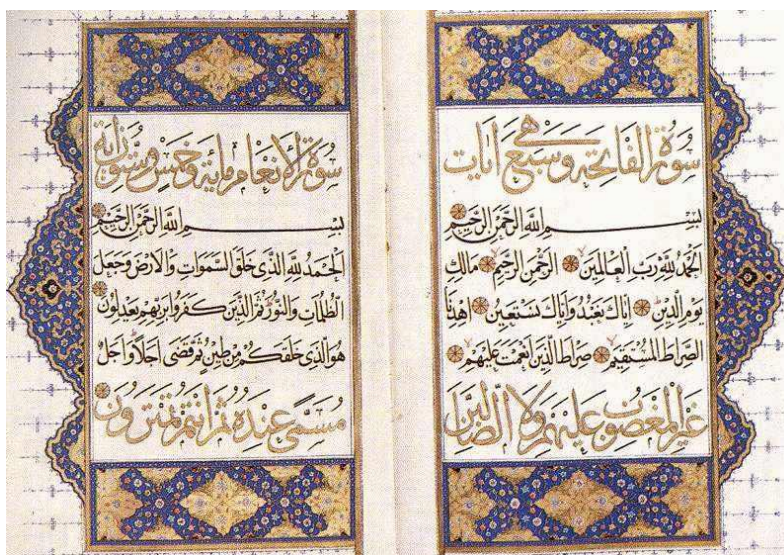 سورة الفاتحة وهي سبع اٰيات
بِسْمِ اللّٰهِ الرَّحْمٰنِ الرَّحِيْمِ
اَلْحَمْدُ لِلّٰهِ رَبِّ الْعَالَمِيْنَ الرَّحْمٰنِ الرَّحِيْمِ مَالِكِ
يَوْمِ الدِّيْنِ اِيَّاكَ نَعْبُدُ وَاِيَّاكَ نَسْتَعِيْنُ اِهْدِنَا
الصِّرَاطَ الْمُسْتَقِيْمَ صِرَاطَ الَّذِيْنَ اَنْعَمْتَ عَلَيْهِمْ
غَيْرِ الْمَغْضُوْبِ عَلَيْهِمْ وَلَا الضَّالِّيْنَ
سورة الانعام مائة وخمس وستون اية
بِسْمِ اللّٰهِ الرَّحْمٰنِ الرَّحِيْمِ
اَلْحَمْدُ لِلّٰهِ الَّذِيْ خَلَقَ السَّمٰوَاتِ وَالْاَرْضَ وَجَعَلَ
الظُّلُمَاتِ وَالنُّوْرَ ثُمَّ الَّذِيْنَ كَفَرُوْا بِرَبِّهِمْ يَعْدِلُوْنَ
هُوَ الَّذِيْ خَلَقَكُمْ مِنْ طِيْنٍ ثُمَّ قَضٰى اَجَلًا وَاَجَلٌ
مُسَمًّى عِنْدَهُ ثُمَّ اَنْتُمْ تَمْتَرُوْنَ